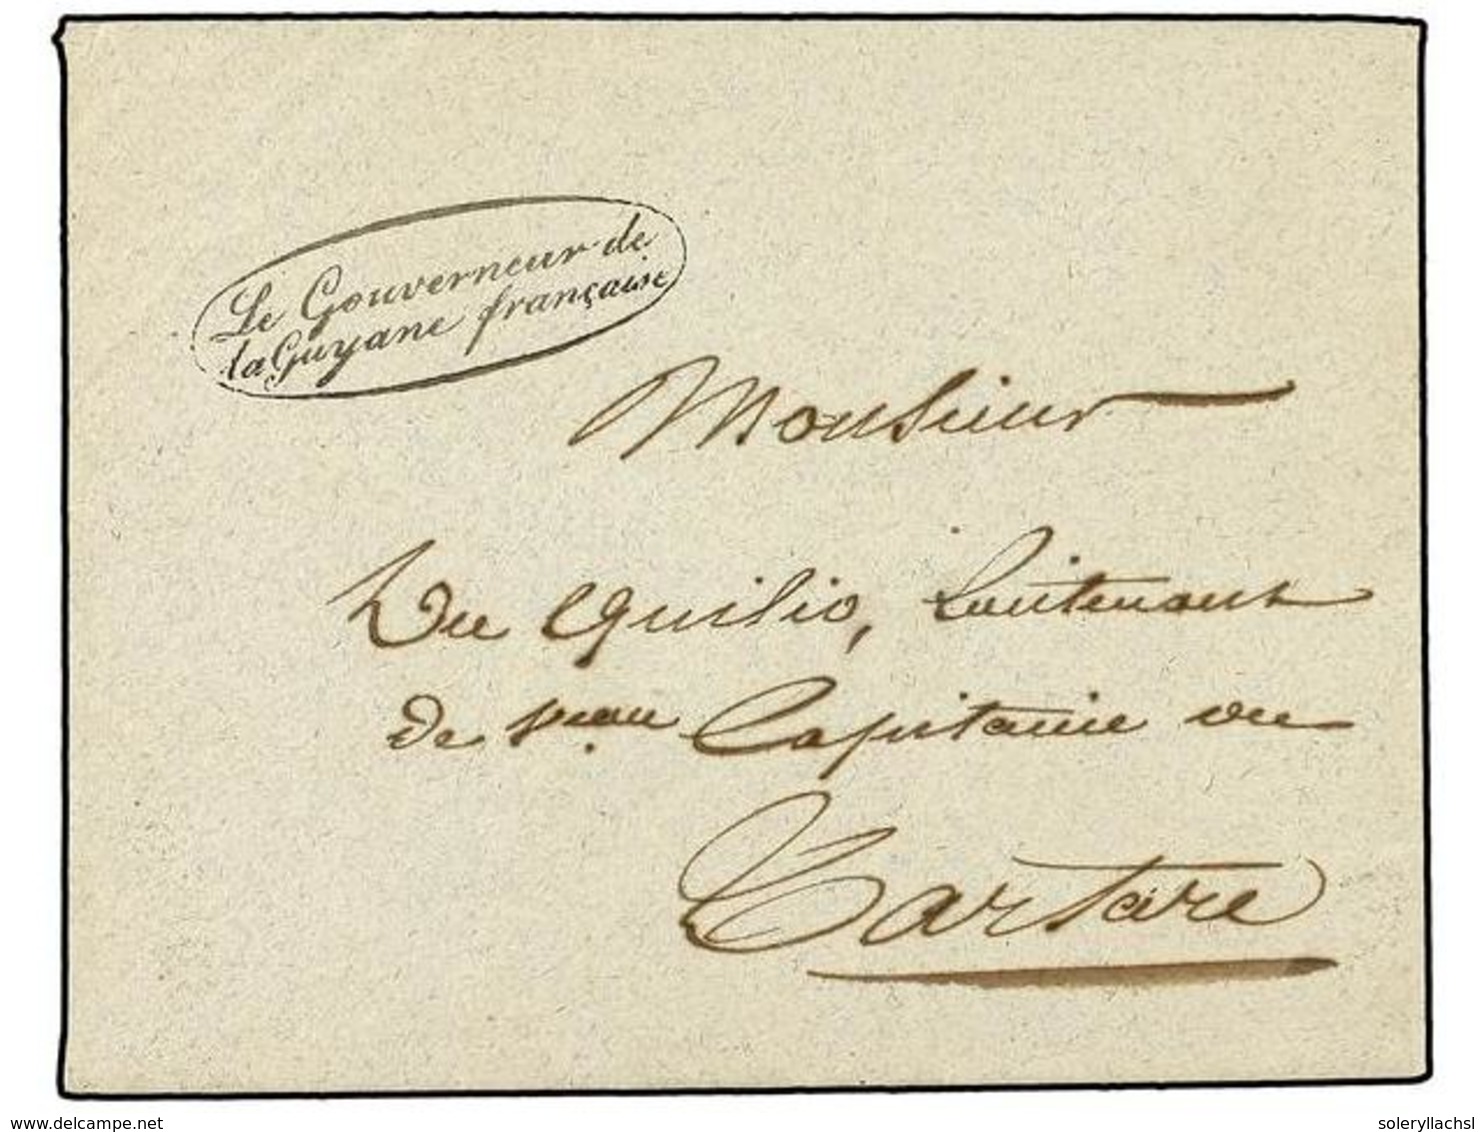 Le Gouverneur de
la Guyane française
Monsieur
Du Quilio, Lieutenant
de Vaisseau Capitaine du
Tartare
delcampe.net
solerylIachsl